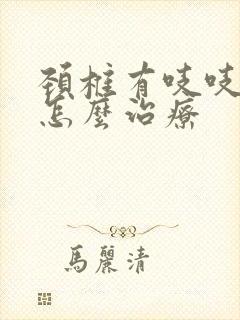 頚椎有吱吱
怎麼治療
馬麗清